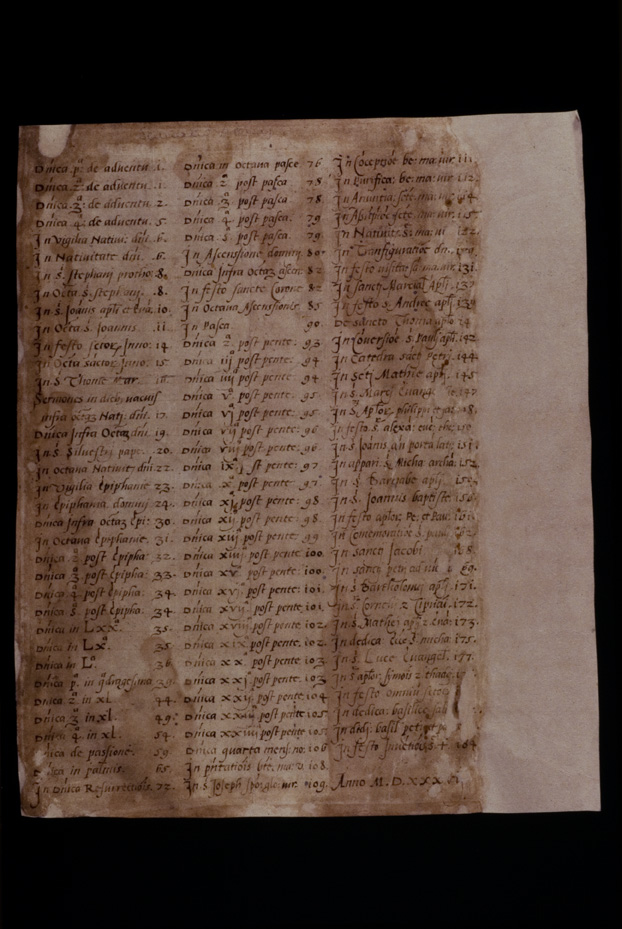 Dnica pª. de adventu. 1.
Dnica 2ª. de adventu. 1.
Dnica 3ª. de adventu. 2.
Dnica 4. de adventu. 5.
In Vigilia Nativit. dni. 6.
In Nativitate dni. .6.
In s. stephani protho: 8.
In Octa s. stephani. .8.
In s. Joannis apli et Evã. 10.
In Octa s. Joannis. .11.
In festo sctor. Inno: 14
In Octa sactor. Inno: 15
In s. Thome mar.
Sermones in dieb. vacuis
infra octaz Nati. dni. 17.
Dnica Infra Octaz dni. 19.
In s. Silvestri pape. .20.
In octava Nativit. dni. 22.
In Vigilia Epiphanie 23.
In Epiphania domini 24.
Dnica Infra octaz Epi: 30.
In Octava Epiphanie. 31.
Dnica 2ª post Epipha: 32.
Dnica 3ª. post Epipha: 33.
Dnica 4ª post Epipha: 34.
Dnica 5. post Epipha. 34.
Dnica in Lxxª. 35.
Dnica in Lxª. 35
Dnica in Lª. 36
Dnica p. in qdragesima 39
Dnica 2ª. in xl. 44.
Dnica 3ª in xl. 49.
Dnica 4ª. in xl. 54.
Dnica de passione. 59
Dnica in palmis. 65.
In Dnica Resurrectiõis. 72.
Dnica in Octava pasce 76
Dnica 2ª. post pasca. 78
Dnica 3ª post pasca 78
Dnica 4ª post pasca. 79
Dnica 5. post pasca. 79
In Ascensione domini. 80
Dnica Infra Octaz ascen. 82
In festo sancte Corone 82
In Octava Ascensionis 85
In Pasca. 90.
Dnica 2ª. post pente: 93
Dnica iii post pente: 94
Dnica iiii post pente: 94
Dnica v. post pente: 95
Dnica vi post pente: 95.
Dnica vii post pente: 96
Dnica viii post pente: 96
Dnica ix post pente: 97
Dnica x. post pente: 97
Dnica xi. post pente: 98
Dnica xii. post pente: 98.
Dnica xiii. post pente: 99
Dnica xiiii. post pente: 100.
Dnica xv. post pente: 100.
Dnica xvi. post pente: 101
Dnica xvii. post pente: 101.
Dnica xviii. post pente: 102.
Dnica xix post pente: 102.
Dnica xx. post pente: 103
Dnica xxi post pente: 103.
Dnica xxii. post pente: 104
Dnica xxiii post pente: 105
Dnica xxiiii post pente 105
Dnica quarta mensis no: 106
In pñtatiõis bte. ma: v. 108.
In s. Joseph spõsi vir. 109.
In Cõceptiõe be: ma: vir. 111.
In Purifica: be: ma: vir. 112.
In Anuntia, scte. ma: vir
In Asũptiõe scte. ma: vir. 115
In Nativita s: ma: vi
In Tranfiguratiõe dni.
In festo visitatõ ma. vir. 131.
In sancti Marcial Apli. 137
In festo s. Andree apl. 139
De sancto Thoma aplo
In Cõversiõe s. Pauli apl.
In Catedra sacti Petri. 144.
In Scti Mathie apli. 145
In s. Marci Evang. 147
In s. Aptor. philippi et ja.
In festo s. alexã:
In s. Joanis an porta lati: 151
In appari. s. Micha archã: 152
In s. Barnabe apli.
In s. Joannis baptiste
In festo aplor. Pe: et Pau.
In Comemoratiõe s. pauli 162
In sancti Jacobi
In sancti petri ad
In s. Bartholomei apli. 171.
In s. Cornelii z Cipriãi. 172.
In s. Mathei apli z Evã: 173.
In dedica: s. micha: 175.
In s. Luce Evangel. 177.
In s. aptor. simõis z thadei
In festo omniũ scto
In dedica: basilice
In dedi: basil pet.
In festo Invetiõis s. 184
Anno M.D.XXX